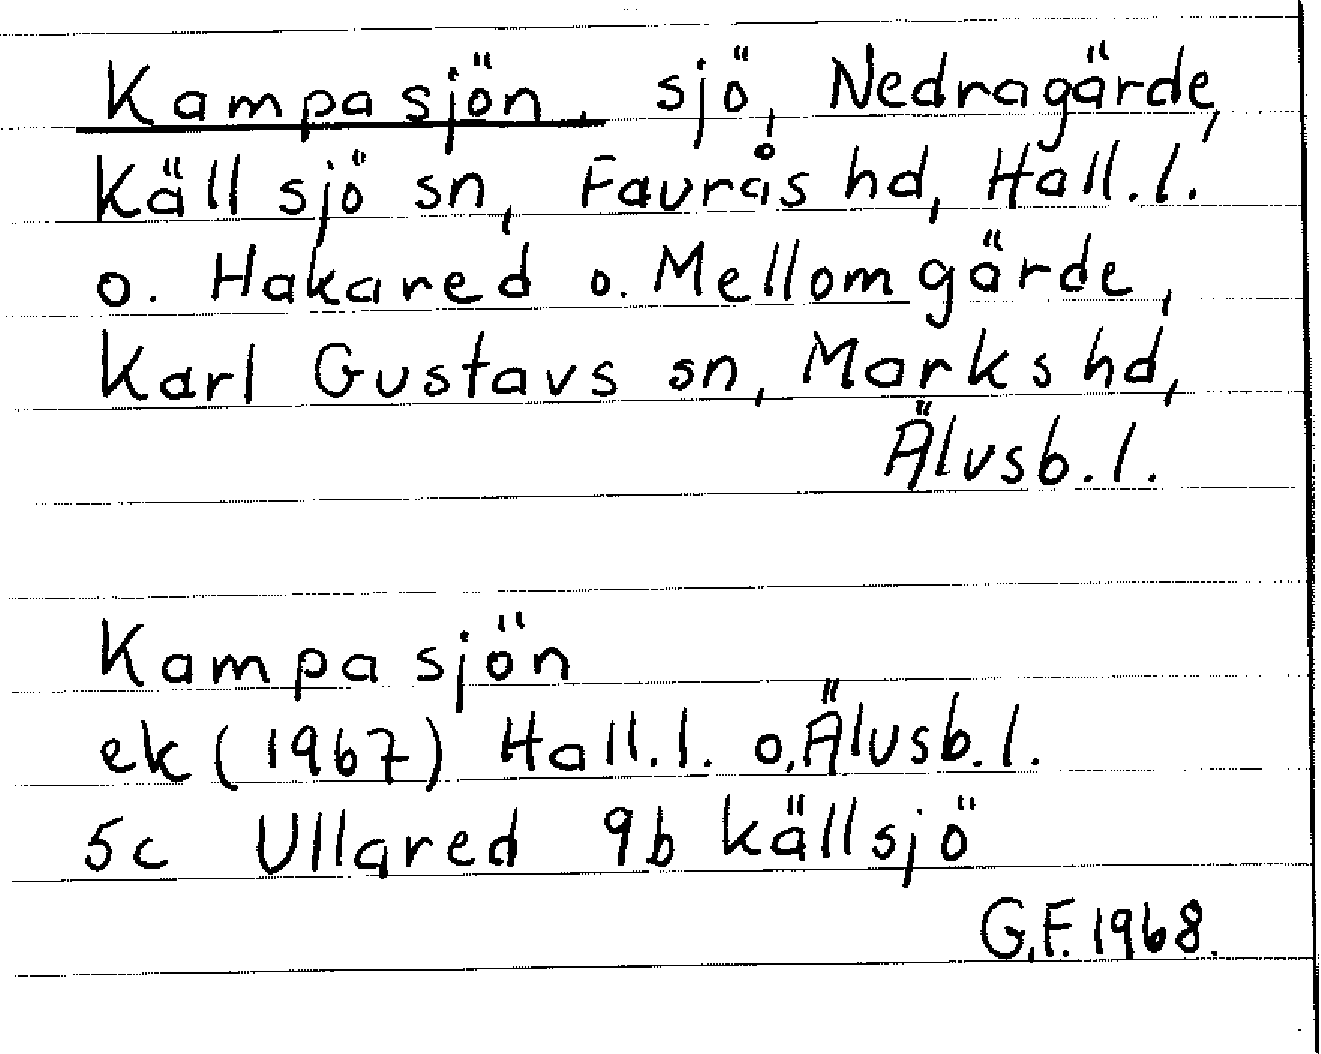 Kampasjön, sjö, Nedragärde,
Källsjö sn, Faurås hd, Hall.l.
o. Hakared o. Mellomgärde,
Karl Gustavs sn, Marks hd,
Älvsb.l.
Kampasjön
ek (1967) Hall.l. o. Älvsb.l.
5c Ullared 9b källsjö
G.F. 1968.